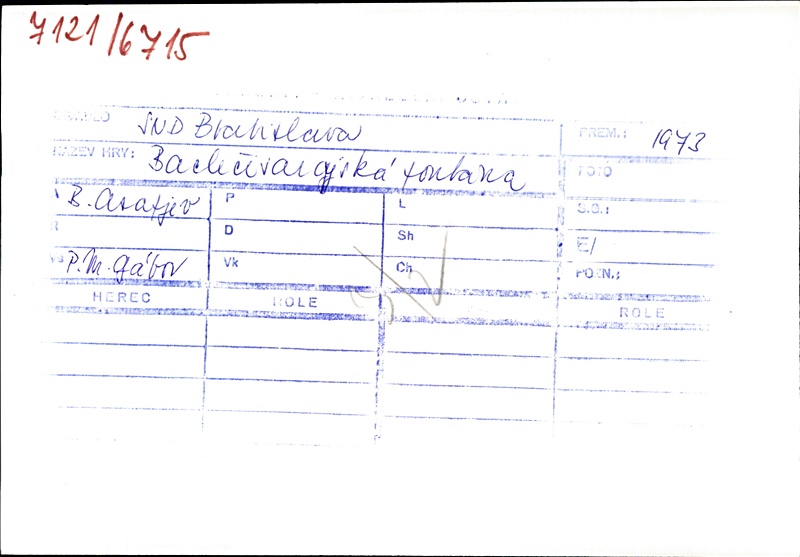 7121/6715
SND Bratislava
PREM.: 1973
NÁZEV HRY: Bachčisarajská fontána
FOTO
B. Asafjev P L S.G.:
D Sh E/
P. M. Gábor Vk Ch POZN.:
HEREC ROLE ROLE